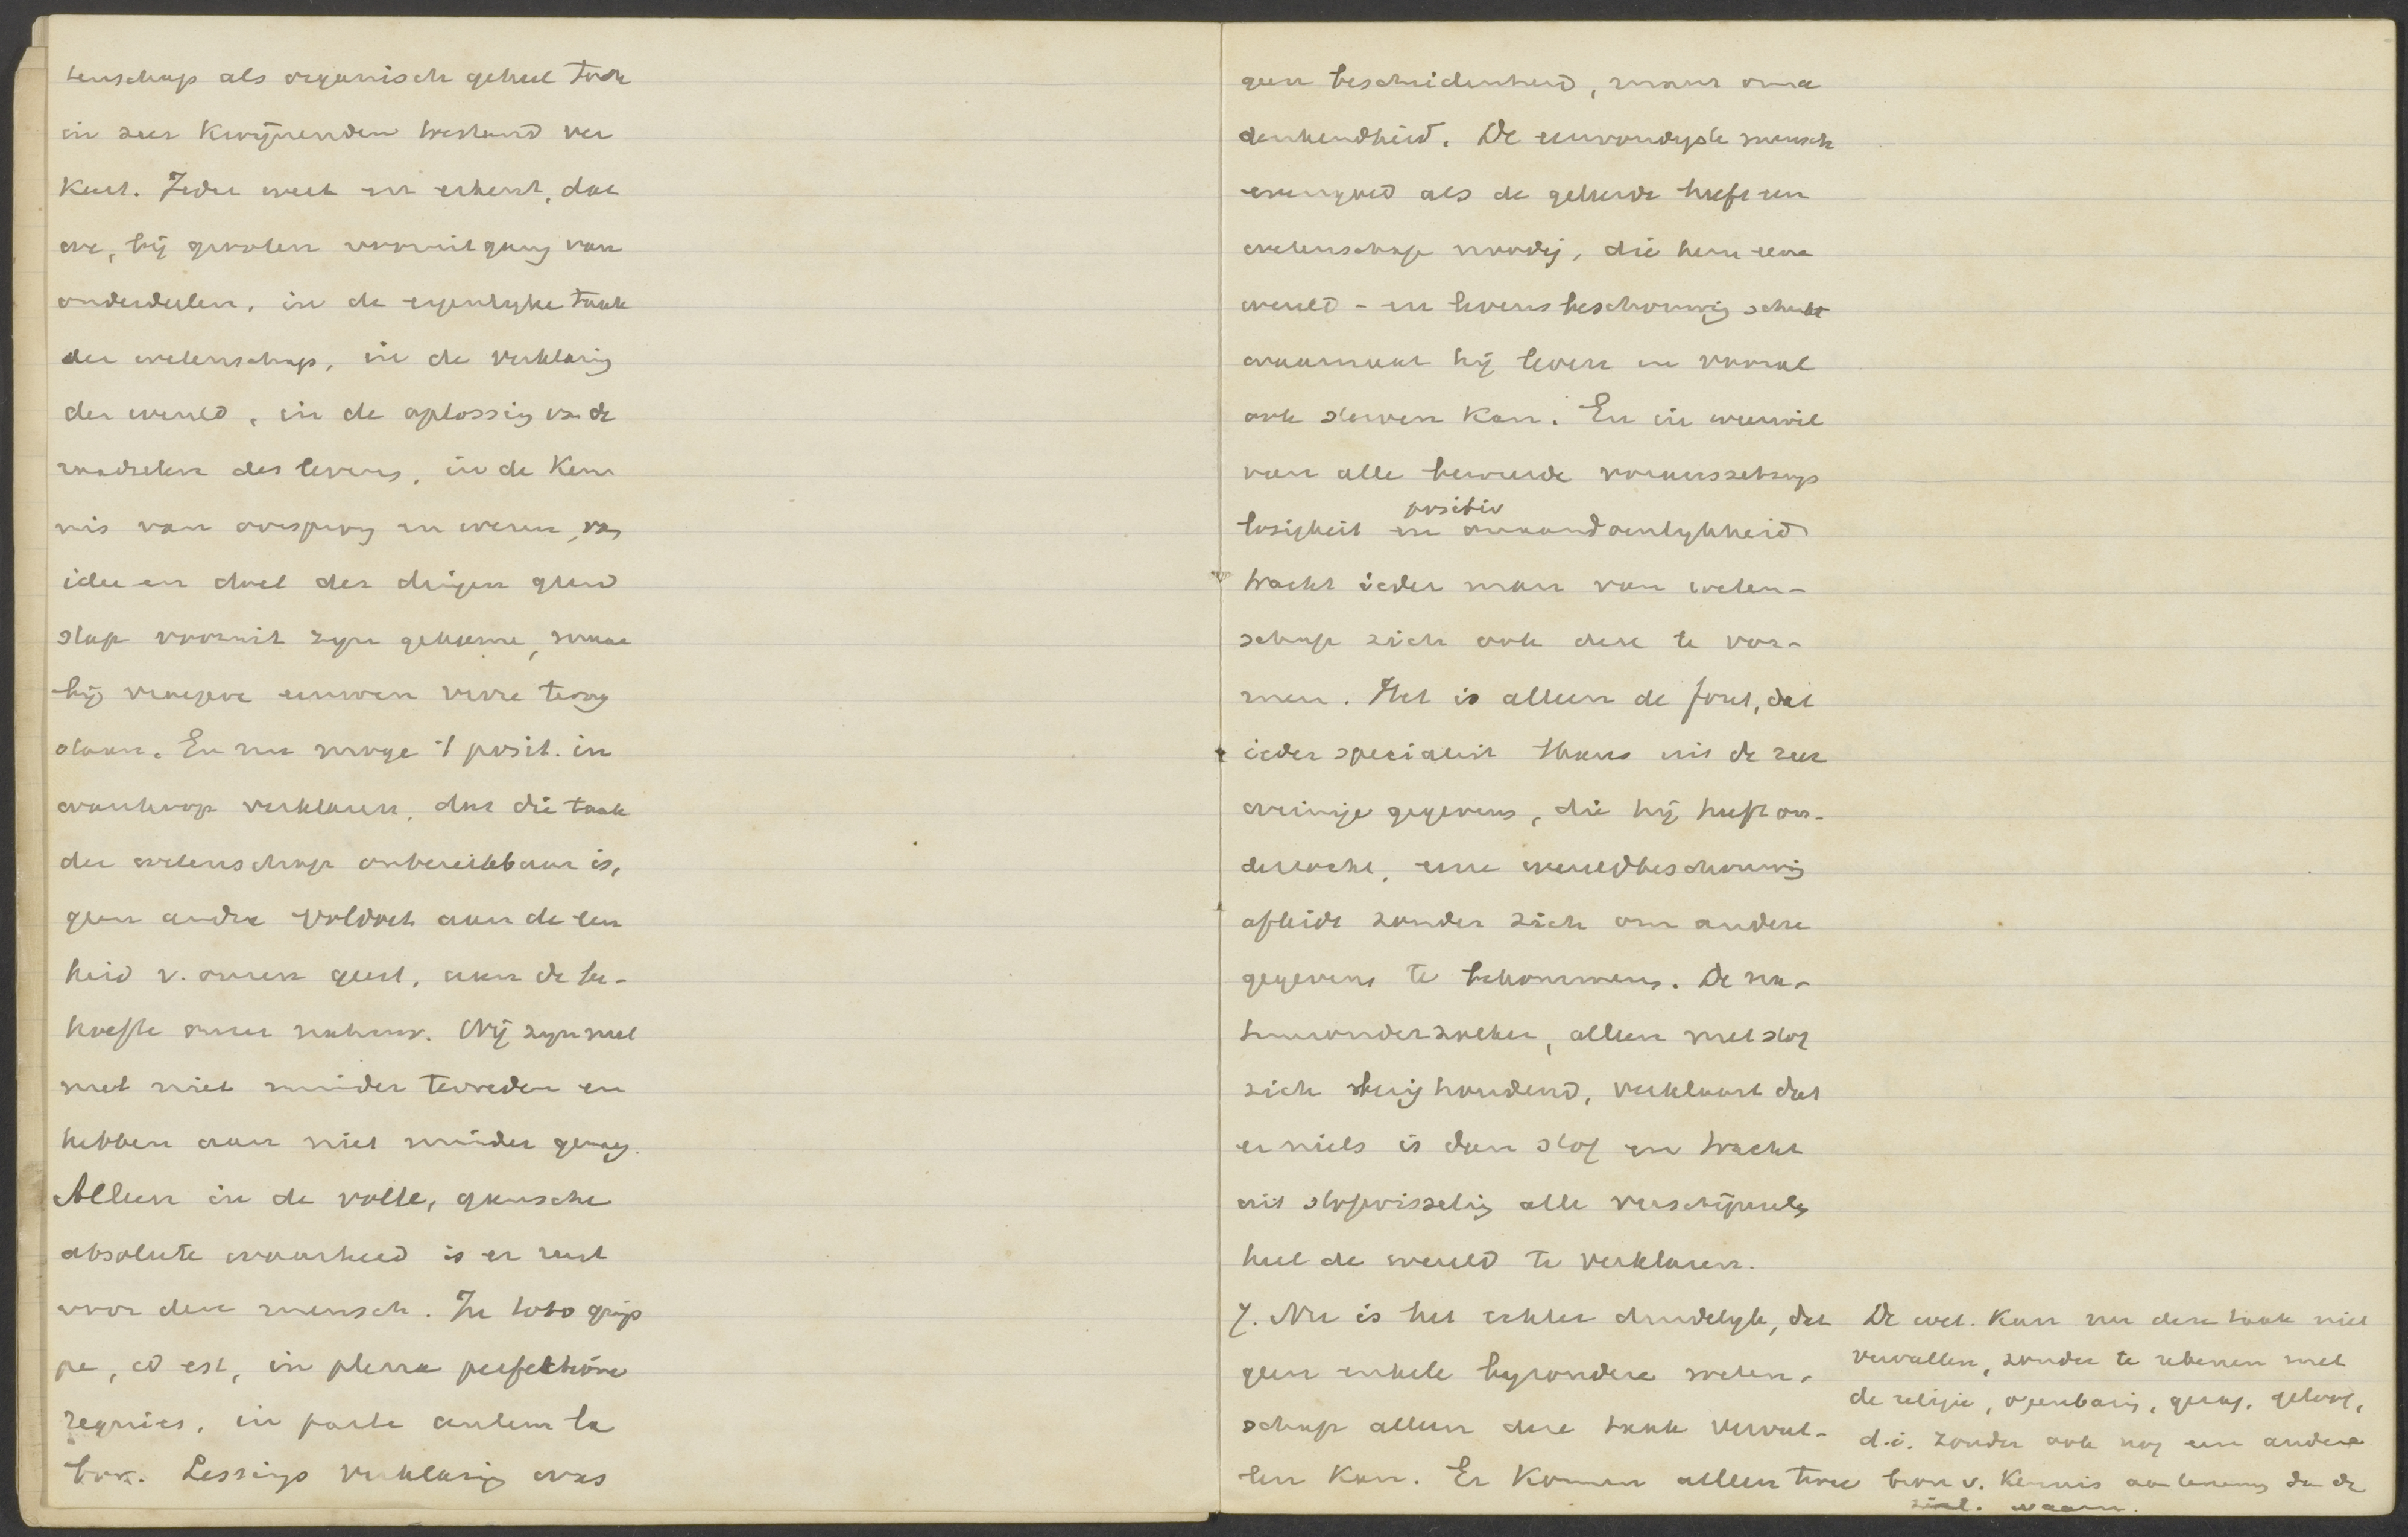 tenschap als organisch geheel toch
in zeer kwijnenden toestand ver
keert. Ieder weet en erkent, dat
we, bij grooten vooruitgang van
onderdeelen, in de eigenlyke taak
der wetenschap, in de verklaring
der wereld, in de oplossing van de
raadselen des levens, in de ken
nis van oorsprong en wezen, van
idee en doel der dingen geen
stap vooruit zyn gekomen, maar
bij vroegere eeuwen verre terug
staan. En nu moge 't posit. in
wanhoop verklaren, dat die taak
der wetenschap onbereikbaar is,
geen andre voldoet aan de een
heid v. onzen geest, aan de be-
hoefte onzer natuur. Wij zyn met
met niet minder tevreden en
hebben aan niet minder genoeg.
Alleen in de volle, gansche
absolute waarheid is er rust
voor den mensch. In toto
id est, in plena perfectione
requies, in parte autem la
bor. Lessings verklaring was
geen bescheidenheid, maar onna
denkendheid. De eenvoudigste mensch
evengoed als de geleerde heeft een
wetenschap noodig, die hem eene
wereld- en levensbeschouwing schenkt
waarnaar hij leven en vooral
ook sterven kan. En in weerwil
van alle beweerde vooronderstellings
loosigheid en positiv onaandoenlykheid
tracht ieder man van weten-
schap zich ook deze te vor-
men. Het is alleen de fout, dat
ieder specialist thans uit de zeer
weinige gegevens, die hij heeft on-
derzocht, eene wereldbeschouwing
afleidt zonder zich om andere
gegevens te bekommeren. De na-
tuuronderzoeker, alleen met stof
zich bezig houdend, verklaart dat
er niets is dan stof en tracht
uit stofwisseling alle verschijnselen
heel de wereld te verklaren.
7. Nu is het echter duidelyk, dat
geen enkele byzondere weten-
schap alleen deze taak vervul-
len kan. Er komen alleen twee
De wet. kan nu deze taak niet
vervullen, zonder te rekenen met
de religie, openbaring, geloof,
d.i. zonder ook nog een andere
bron v. kennis aan te nemen dan de
waarn.